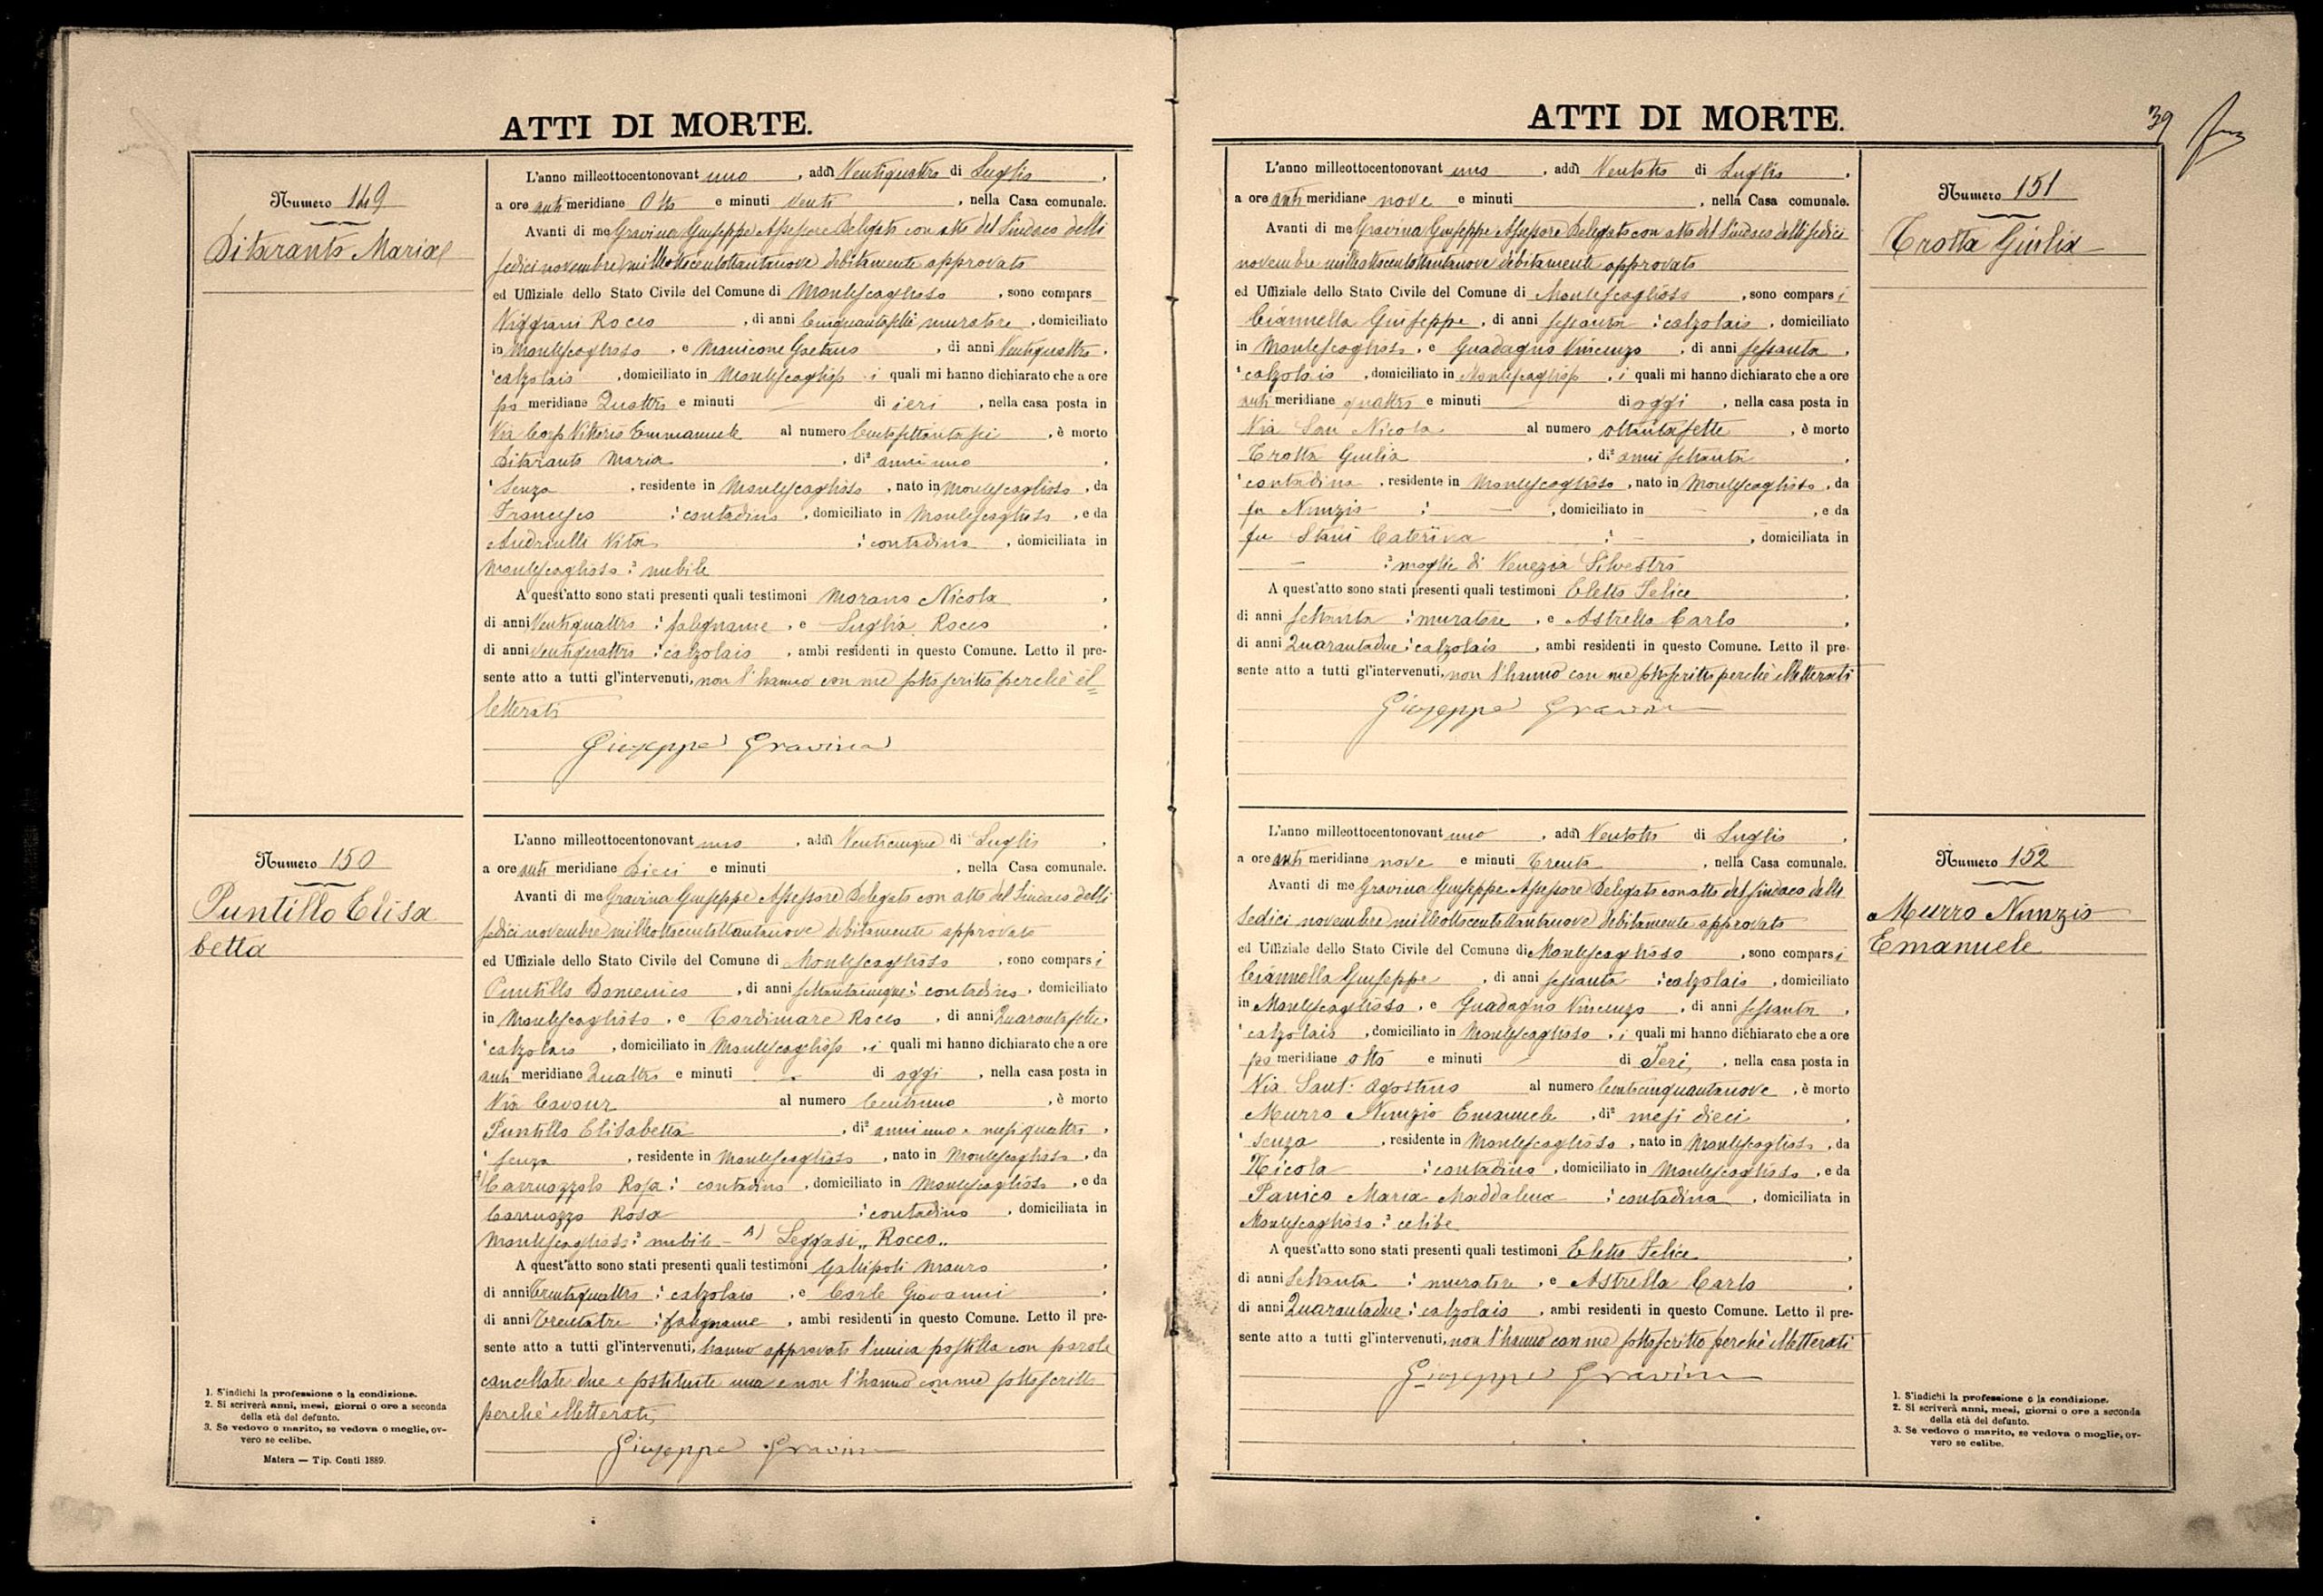 ATTI DI MORTE.
Numero 149
Ditaranto Maria
L'anno milleottocentonovant uno, addì Ventiquattro di Luglio,
a ore anti meridiane Otto e minuti venti, nella Casa comunale.
Avanti di me Gravina Giuseppe Assessore Delegato con atto del Sindaco delli
sedici novembre milleottocentottantanove debitamente approvato
ed Uffiziale dello Stato Civile del Comune di Montescaglioso, sono compars
Viggiani Rocco, di anni Cinquantasette muratore, domiciliato
in Montescaglioso, e Manicone Gaetano, di anni Ventiquattro,
¹ calzolaio, domiciliato in Montescaglioso, i quali mi hanno dichiarato che a ore
po meridiane Quattro e minuti — di ieri, nella casa posta in
Via Corso Vittorio Emmanuele al numero Centosettantasei, è morto
Ditaranto Maria, di² anni uno,
¹ senza, residente in Montescaglioso, nato in Montescaglioso, da
Francesco ¹ contadino, domiciliato in Montescaglioso, e da
Andriulli Vita ¹ contadina, domiciliata in
Montescaglioso ³ nubile
A quest'atto sono stati presenti quali testimoni Morano Nicola,
di anni Ventiquattro ¹ falegname, e Suglia Rocco,
di anni Ventiquattro ¹ calzolaio, ambi residenti in questo Comune. Letto il pre-
sente atto a tutti gl'intervenuti, non l'hanno con me sottoscritto perchè il=
letterati
Giuseppe Gravina
Numero 150
Puntillo Elisa
betta
L'anno milleottocentonovant uno, addì Venticinque di Luglio,
a ore anti meridiane Dieci e minuti, nella Casa comunale.
Avanti di me Gravina Giuseppe Assessore Delegato con atto del Sindaco delli
sedici novembre milleottocentottantanove debitamente approvato
ed Uffiziale dello Stato Civile del Comune di Montescaglioso, sono compars i
Puntillo Domenico, di anni settantacinque ¹ contadino, domiciliato
in Montescaglioso, e Tardimare Rocco, di anni Quarantasette,
¹ calzolaio, domiciliato in Montescaglioso, i quali mi hanno dichiarato che a ore
anti meridiane Quattro e minuti — di oggi, nella casa posta in
Via Cavour al numero Centouno, è morto
Puntillo Elisabetta, di² anni uno e mesi quattro,
¹ senza, residente in Montescaglioso, nato in Montescaglioso, da
A) Carruozzolo Rosa ¹ contadino, domiciliato in Montescaglioso, e da
Carruozzo Rosa ¹ contadina, domiciliata in
Montescaglioso ³ nubile — A) Leggasi „Rocco„
A quest'atto sono stati presenti quali testimoni Gallipoli Mauro,
di anni Trentaquattro ¹ calzolaio, e Carle Giovanni,
di anni Trentatre ¹ falegname, ambi residenti in questo Comune. Letto il pre-
sente atto a tutti gl'intervenuti, hanno approvato l'unica postilla con parole
cancellate due e sostituite una e non l'hanno con me sottoscritto
perchè illetterati
Giuseppe Gravina
1. S'indichi la professione o la condizione.
2. Si scriverà anni, mesi, giorni o ore a seconda
della età del defunto.
3. Se vedovo o marito, se vedova o moglie, ov-
vero se celibe.
Matera — Tip. Conti 1889.
ATTI DI MORTE.
39
Numero 151
Trotta Giulia
L'anno milleottocentonovant uno, addì Ventotto di Luglio,
a ore anti meridiane nove e minuti, nella Casa comunale.
Avanti di me Gravina Giuseppe Assessore Delegato con atto del Sindaco delli sedici
novembre milleottocentottantanove debitamente approvato
ed Uffiziale dello Stato Civile del Comune di Montescaglioso, sono compars i
Ciannella Giuseppe, di anni sessanta ¹ calzolaio, domiciliato
in Montescaglioso, e Guadagno Vincenzo, di anni sessanta,
¹ calzolaio, domiciliato in Montescaglioso, i quali mi hanno dichiarato che a ore
anti meridiane quattro e minuti — di oggi, nella casa posta in
Via San Nicola al numero ottantasette, è morto
Trotta Giulia, di² anni settanta,
¹ contadina, residente in Montescaglioso, nato in Montescaglioso, da
fu Nunzio ¹ —, domiciliato in —, e da
fu Stani Caterina ¹ —, domiciliata in
— ³ moglie di Venezia Silvestro
A quest'atto sono stati presenti quali testimoni Eletto Felice,
di anni settanta ¹ muratore, e Astrella Carlo,
di anni Quarantadue ¹ calzolaio, ambi residenti in questo Comune. Letto il pre-
sente atto a tutti gl'intervenuti, non l'hanno con me sottoscritto perchè illetterati
Giuseppe Gravina
Numero 152
Murro Nunzio
Emanuele
L'anno milleottocentonovant uno, addì Ventotto di Luglio,
a ore anti meridiane nove e minuti Trenta, nella Casa comunale.
Avanti di me Gravina Giuseppe Assessore Delegato con atto del Sindaco delli
sedici novembre milleottocentottantanove debitamente approvato
ed Uffiziale dello Stato Civile del Comune di Montescaglioso, sono compars i
Ciannella Giuseppe, di anni sessanta ¹ calzolaio, domiciliato
in Montescaglioso, e Guadagno Vincenzo, di anni sessanta,
¹ calzolaio, domiciliato in Montescaglioso, i quali mi hanno dichiarato che a ore
po meridiane otto e minuti — di Ieri, nella casa posta in
Via Sant'Agostino al numero Centocinquantanove, è morto
Murro Nunzio Emanuele, di² mesi dieci,
¹ senza, residente in Montescaglioso, nato in Montescaglioso, da
Nicola ¹ contadino, domiciliato in Montescaglioso, e da
Panico Maria Maddalena ¹ contadina, domiciliata in
Montescaglioso ³ celibe
A quest'atto sono stati presenti quali testimoni Eletto Felice,
di anni Settanta ¹ muratore, e Astrella Carlo,
di anni Quarantadue ¹ calzolaio, ambi residenti in questo Comune. Letto il pre-
sente atto a tutti gl'intervenuti, non l'hanno con me sottoscritto perchè illetterati
Giuseppe Gravina
1. S'indichi la professione o la condizione.
2. Si scriverà anni, mesi, giorni o ore a seconda
della età del defunto.
3. Se vedovo o marito, se vedova o moglie, ov-
vero se celibe.